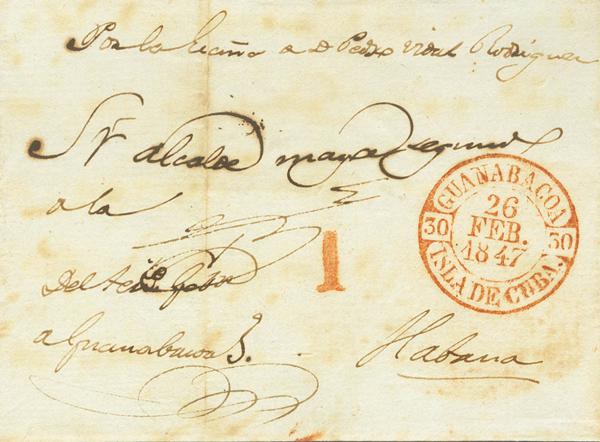 Por la a D Pedro Vidal Rodriguez
Sr Alcalde mayor segundo
a la
Del
a Guanabacoa
Habana
1
GUANABACOA
30 26 FEB. 1847 30
ISLA DE CUBA.